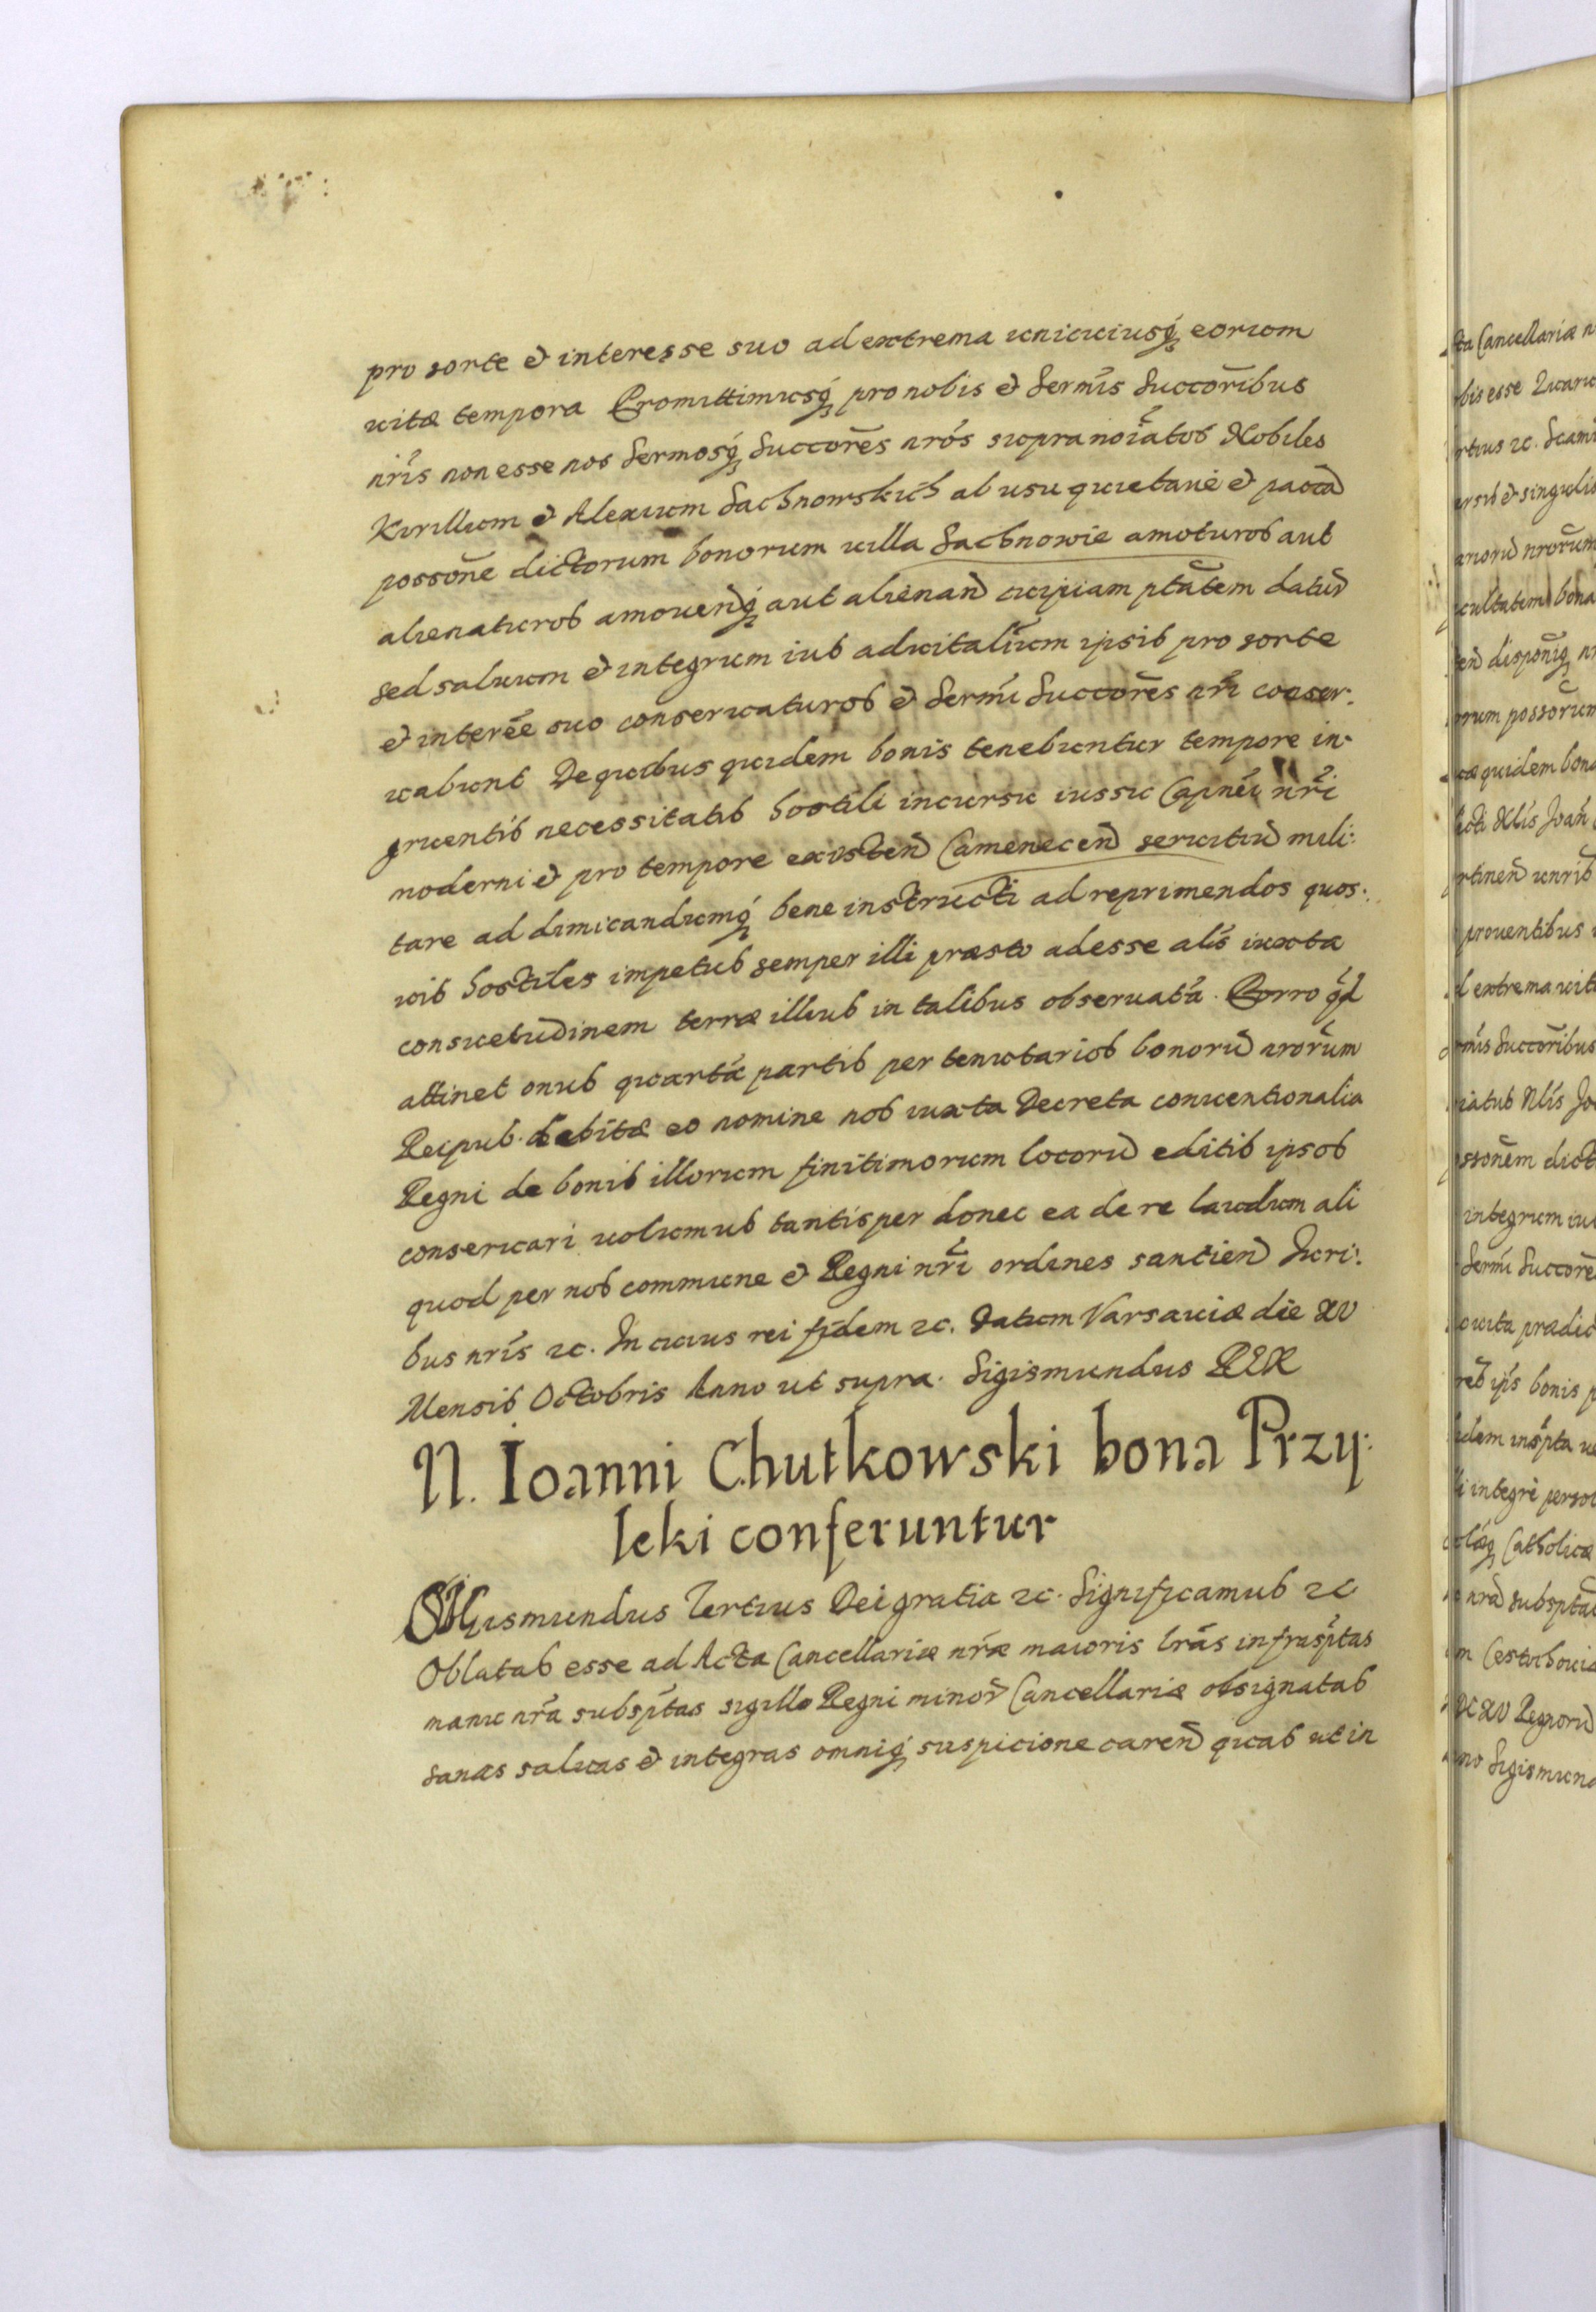 pro sorte et interesse suo ad extrema uniuiusq́ₓ eorum
uitæ tempora Promittimusq́ₓ pro nobis et Sermis̃ Succorĩbus
nrĩs non esse nos Sermosq́ₓ Succorẽs nrõs supra noĩatos Nobiles
Kirillum et Alexium Sachnowskich ab usu quietaué et paccã
possonẽ dictorum bonorum uilla Sachnowie amoturos aut
alienaturos amouendq́ₓ aut alienand̃ cuipiam ptãtem datur̃
sed saluum et integrum ius aduitaliũm ipsis pro sorte
et interẽe suo conseruaturos et Sermi̇̃ Succorẽs nrĩ conser:
uabunt De quibus quidem bonis tenebuntur tempore in-
gruentis necessitatis hostili incursu iussu Capneĩ nrĩ
moderni et pro tempore existen̄ Camenecen̄ seruitiũ mili:
tare ad dimicandumq́ₓ bene instructi ad reprimendos quos:
uis hostiles impetus semper illi præsto adesse alĩs iuxta
consuetudinem terræ illius in talibus obseruatã. Porro q̃d
attinet onus quartã partis per tenutarios bonorũ nrorũm
Reipub. debitæ eo nomine nos iuxta Decreta conuentionalia
Regni de bonis illorum finitimorum locorũ editis ipsos
conseruari uolumus tantisper donec ea de re laudum ali
quod per nos commune et Regni nrĩ ordines sancien̄ Iuri:
bus nrĩs ꝛc. In cuius rei fidem ꝛc. Datum Varsauiæ die XV
Mensis Octobris Anno ut supra. Sigismundus REX
N. Ioanni Chutkowski bona Przy:
leki conferuntur
Sigismundus Tertius Dei gratia ꝛc. Significamus ꝛc
Oblatas esse ad Acta Cancellariæ nrãe maioris lrãs infrasp̃tas
manu nrã subsp̃tas sigillo Regni minor̃ Cancellariæ obsignatas
sanas saluas et integras omniq́ₓ suspicione caren̄ quas ut in